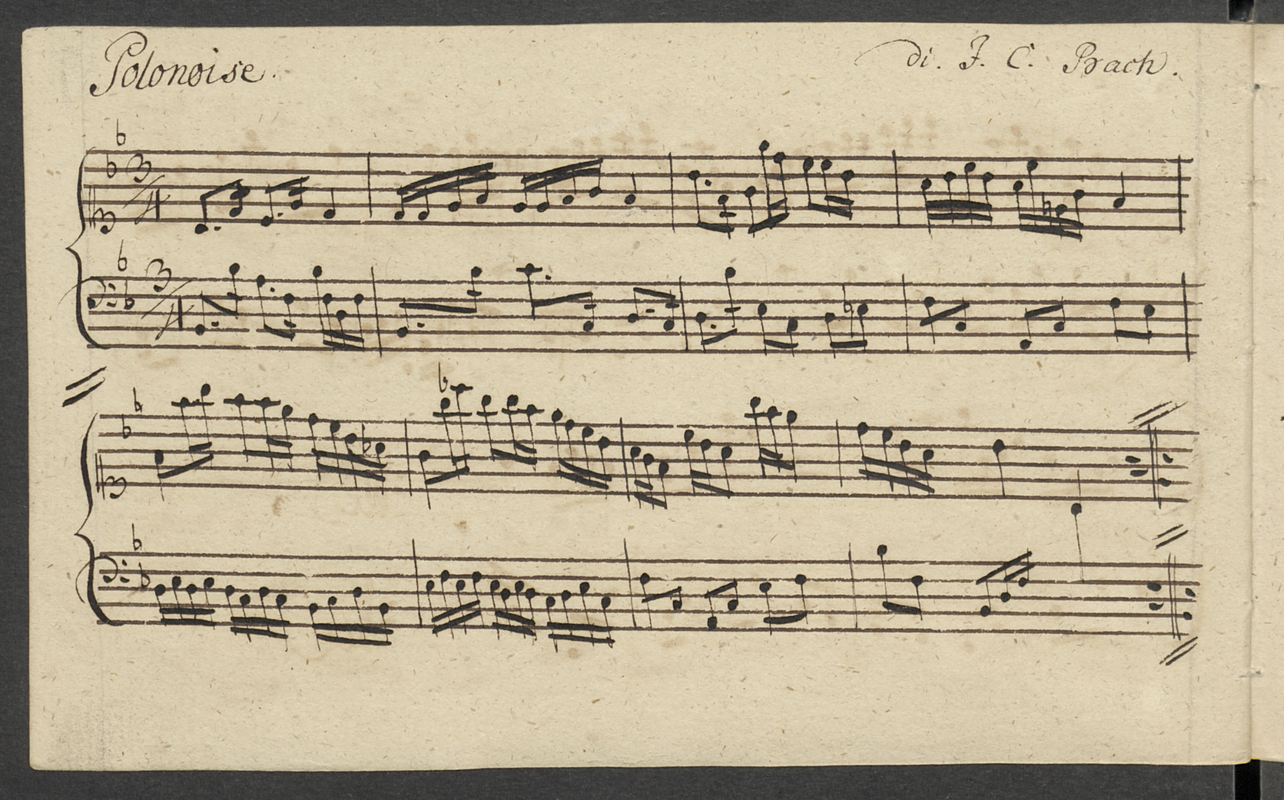 Polonoise.
di. J. C. Bach.
3/4
3/4